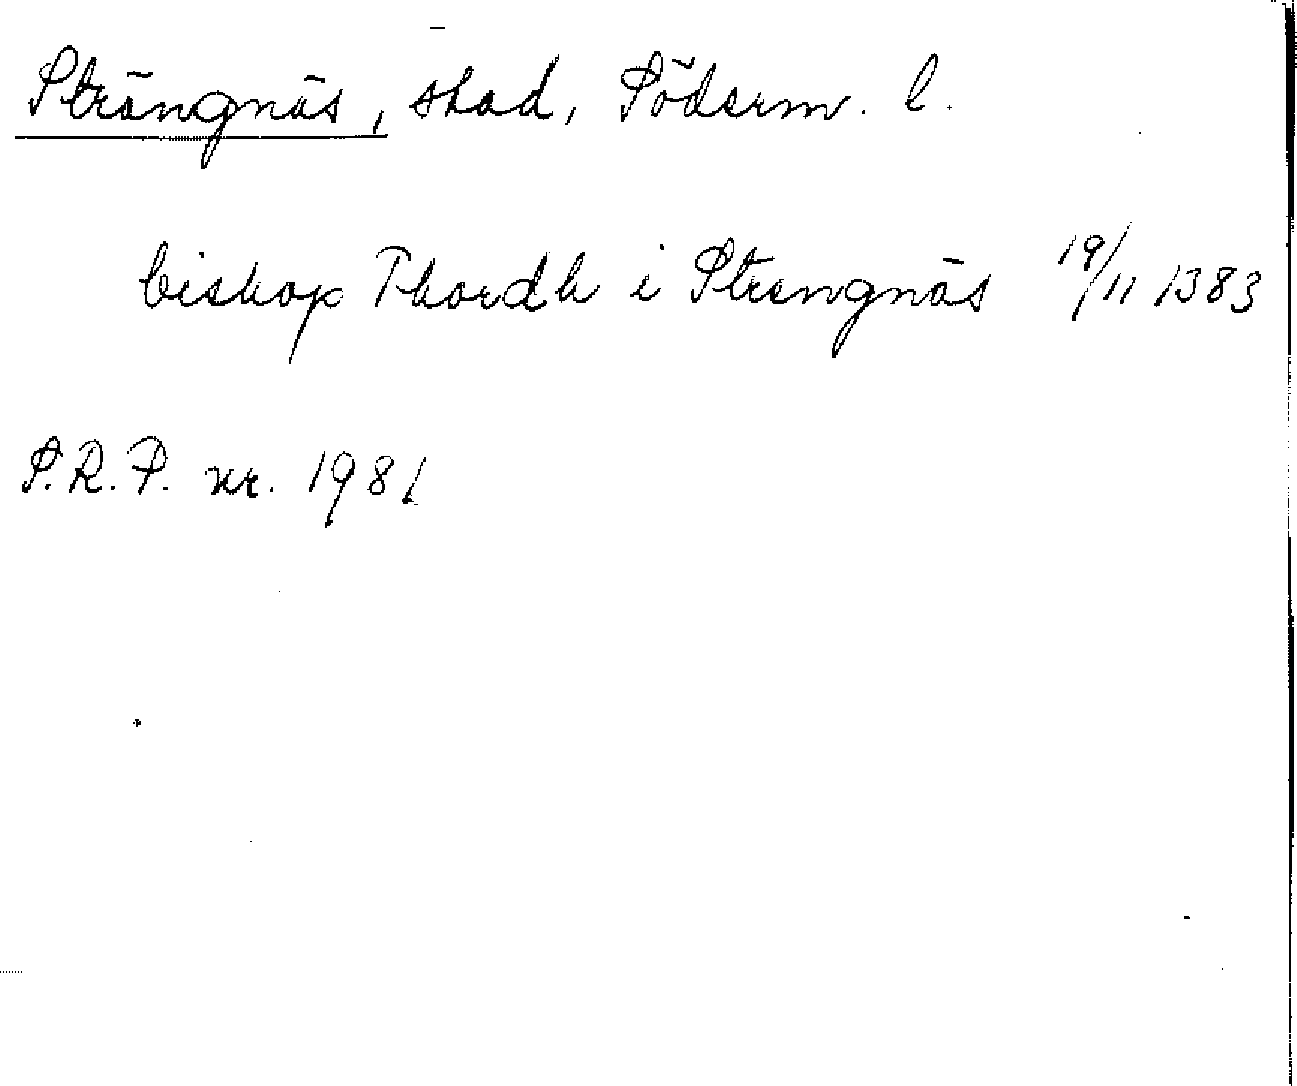 Strängnäs, stad, Söderm. l.
biskop Thordh i Strengnäs 19/11 1383
S.R.P. nr. 1981